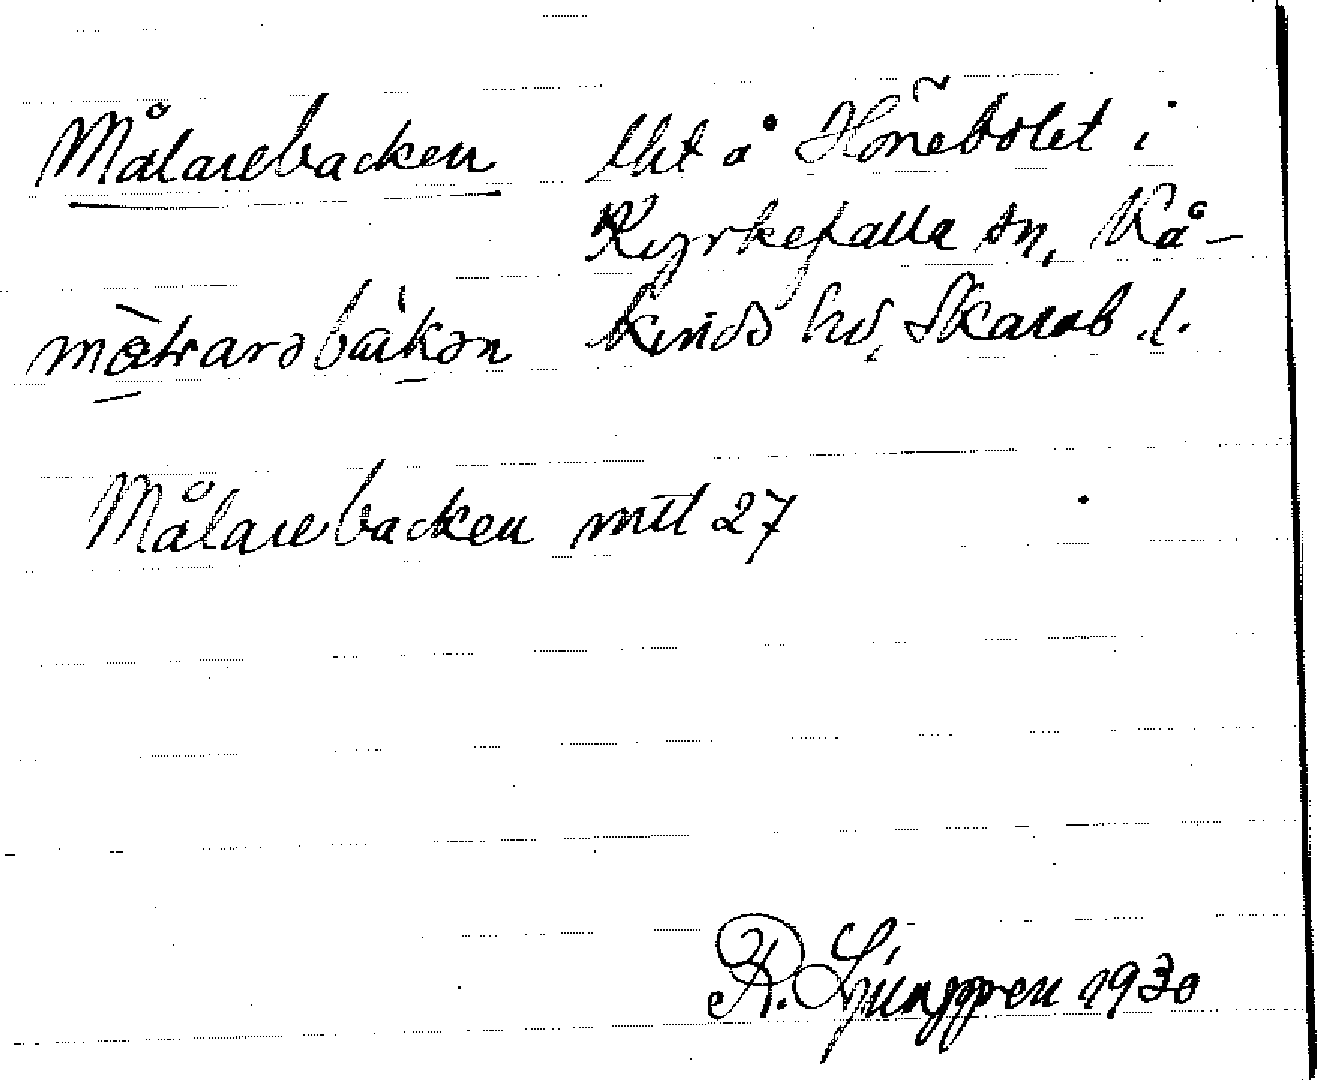 Målarebacken lht å Hönebolet i
Kyrkefalla sn, Kå-
kinds hd, Skarab. l.
Målarebacken mtl 27
R. Ljunggren 1930